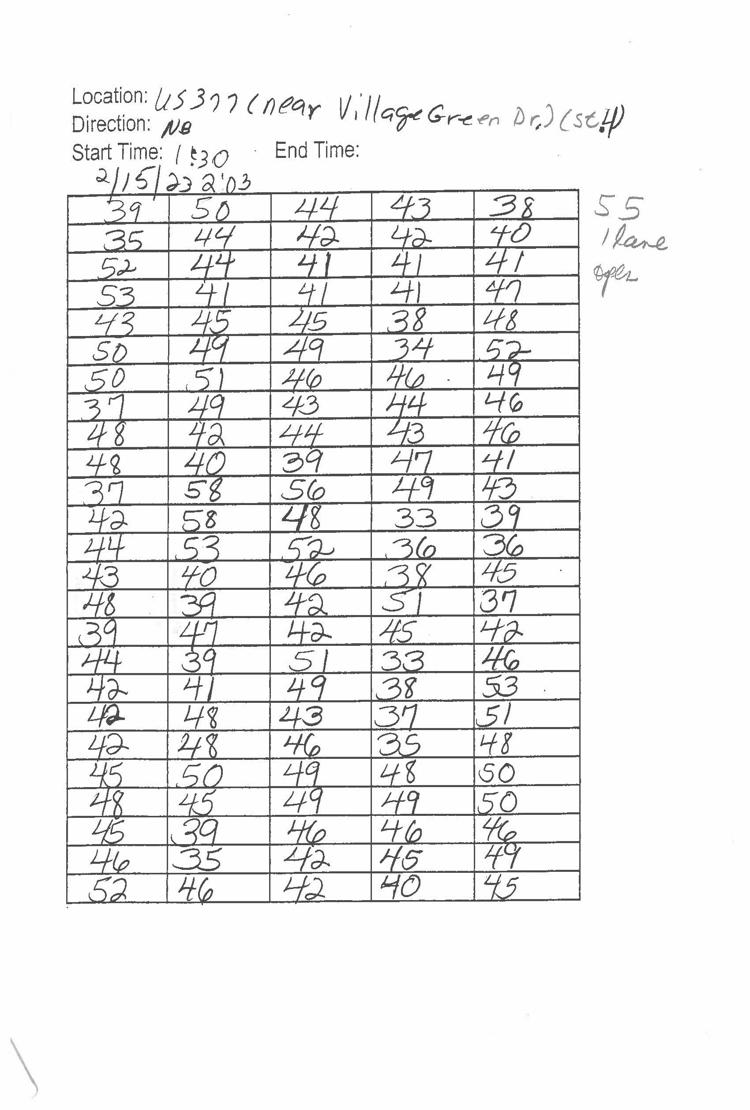 Location: US377 (near Village Green Dr.) (St.4)
Direction: NB
Start Time: 1:30 End Time:
2/15/23 2:03
39 50 44 43 38 55
35 44 42 42 40 1 lane
52 44 41 41 41
53 41 41 41 47
43 45 45 38 48
50 49 49 34 52
50 51 46 46 49
37 49 43 44 46
48 42 44 43 46
48 40 39 47 41
37 58 56 49 43
42 58 48 33 39
44 53 52 36 36
43 40 46 38 45
48 39 42 51 37
39 47 42 45 42
44 39 51 33 46
42 41 49 38 53
42 48 43 37 51
42 48 46 35 48
45 50 49 48 50
48 45 49 49 50
45 39 46 46 46
46 35 42 45 49
52 46 42 40 45